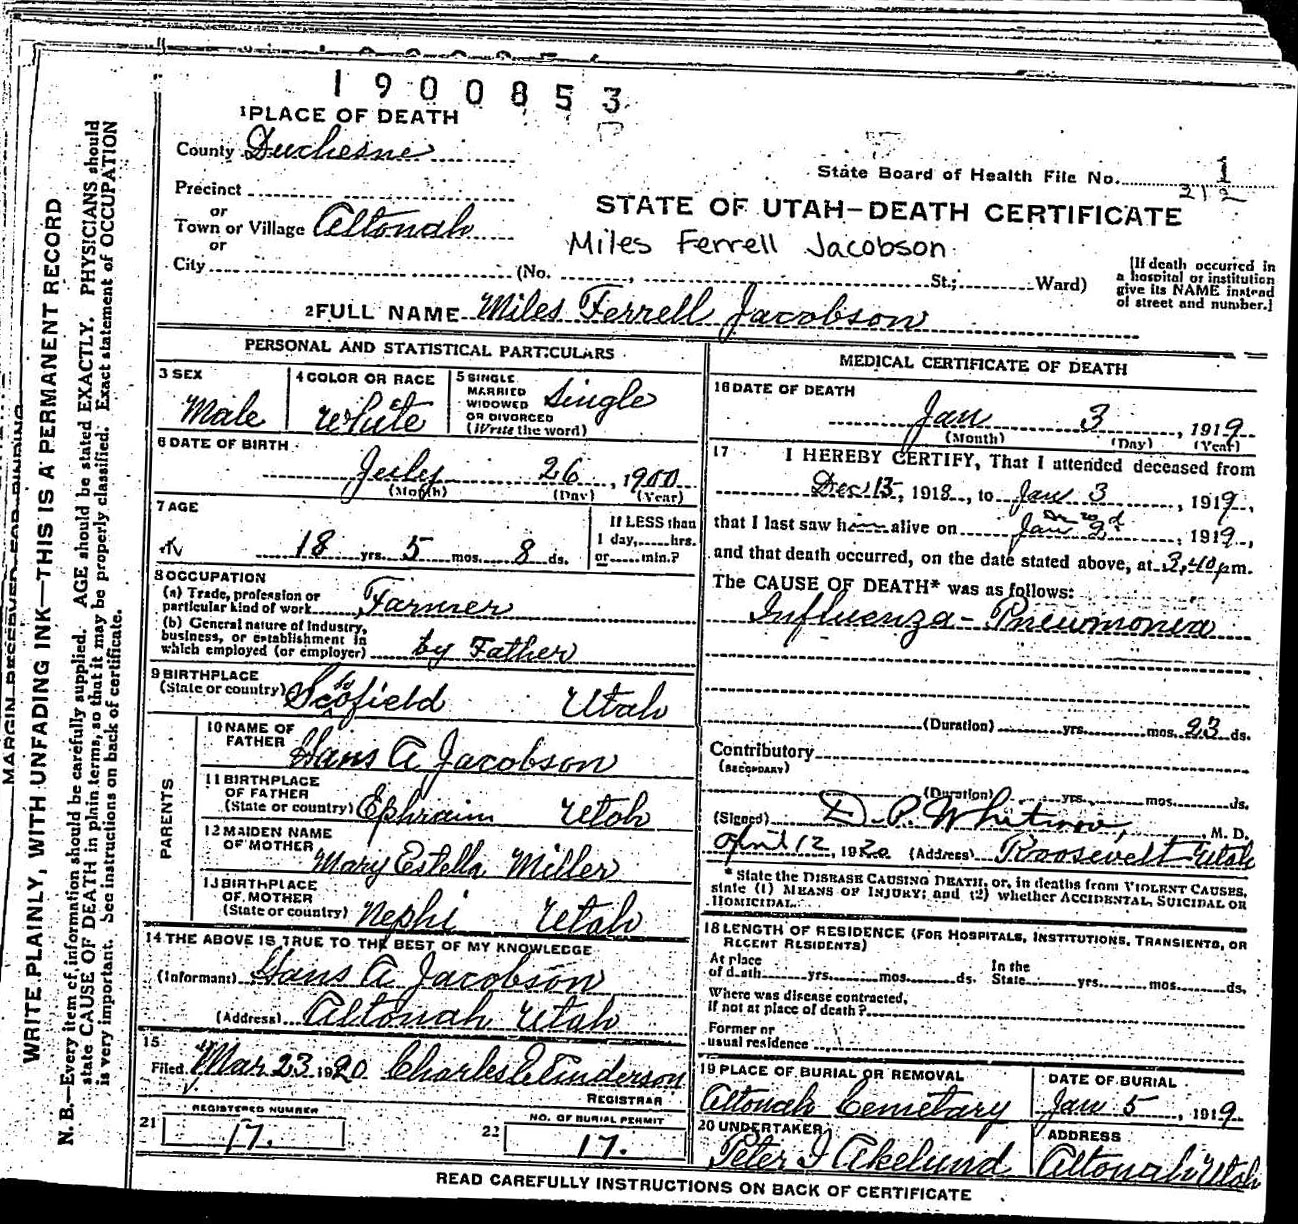 1900853
1 PLACE OF DEATH
County Duchesne
State Board of Health File No. 1
212
Precinct
or
Town or Village Altonah
or
STATE OF UTAH—DEATH CERTIFICATE
Miles Ferrell Jacobson
City (No. , St.; Ward)
[If death occurred in
a hospital or institution
give its NAME instead
of street and number.]
2 FULL NAME Miles Ferrell Jacobson
PERSONAL AND STATISTICAL PARTICULARS
3 SEX
Male
4 COLOR OR RACE
White
5 SINGLE
MARRIED
WIDOWED
OR DIVORCED
(Write the word)
Single
6 DATE OF BIRTH
July 26, 1900
(Month) (Day) (Year)
7 AGE
18 yrs. 5 mos. 8 ds.
If LESS than
1 day, hrs.
or min.?
8 OCCUPATION
(a) Trade, profession or
particular kind of work Farmer
(b) General nature of Industry,
business, or establishment in
which employed (or employer) by Father
9 BIRTHPLACE
(State or country) Scofield Utah
PARENTS
10 NAME OF
FATHER Hans A Jacobson
11 BIRTHPLACE
OF FATHER
(State or country) Ephraim Utah
12 MAIDEN NAME
OF MOTHER
Mary Estella Miller
13 BIRTHPLACE
OF MOTHER
(State or country) Nephi Utah
14 THE ABOVE IS TRUE TO THE BEST OF MY KNOWLEDGE
(Informant) Hans A Jacobson
(Address) Altonah Utah
15
Filed Mar 23 1920 Charles Anderson
REGISTRAR
REGISTERED NUMBER
21 17.
NO. OF BURIAL PERMIT
22 17.
MEDICAL CERTIFICATE OF DEATH
16 DATE OF DEATH
Jan 3, 1919
(Month) (Day) (Year)
17 I HEREBY CERTIFY, That I attended deceased from
Dec 15, 1918, to Jan 3, 1919,
that I last saw h alive on Jan 2d, 1919,
and that death occurred, on the date stated above, at 3,40 pm.
The CAUSE OF DEATH* was as follows:
Influenza - Pneumonia
(Duration) yrs. mos. 23 ds.
Contributory
(SECONDARY)
(Duration) yrs. mos. ds.
(Signed) D. P. Whitmore, M. D.
April 12, 1920 (Address) Roosevelt Utah
* State the DISEASE CAUSING DEATH, or, in deaths from VIOLENT CAUSES,
state (1) MEANS OF INJURY; and (2) whether ACCIDENTAL, SUICIDAL OR
HOMICIDAL.
18 LENGTH OF RESIDENCE (FOR HOSPITALS, INSTITUTIONS, TRANSIENTS, OR
RECENT RESIDENTS)
At place
of death yrs. mos. ds.
In the
State yrs. mos. ds.
Where was disease contracted,
If not at place of death?
Former or
usual residence
19 PLACE OF BURIAL OR REMOVAL
Altonah Cemetary
DATE OF BURIAL
Jan 5, 1919
20 UNDERTAKER
Peter J Akelund
ADDRESS
Altonah Utah
READ CAREFULLY INSTRUCTIONS ON BACK OF CERTIFICATE
MARGIN RESERVED FOR BINDING
WRITE PLAINLY, WITH UNFADING INK—THIS IS A PERMANENT RECORD
N. B.—Every item of information should be carefully supplied. AGE should be stated EXACTLY. PHYSICIANS should
state CAUSE OF DEATH in plain terms, so that it may be properly classified. Exact statement of OCCUPATION
is very important. See instructions on back of certificate.